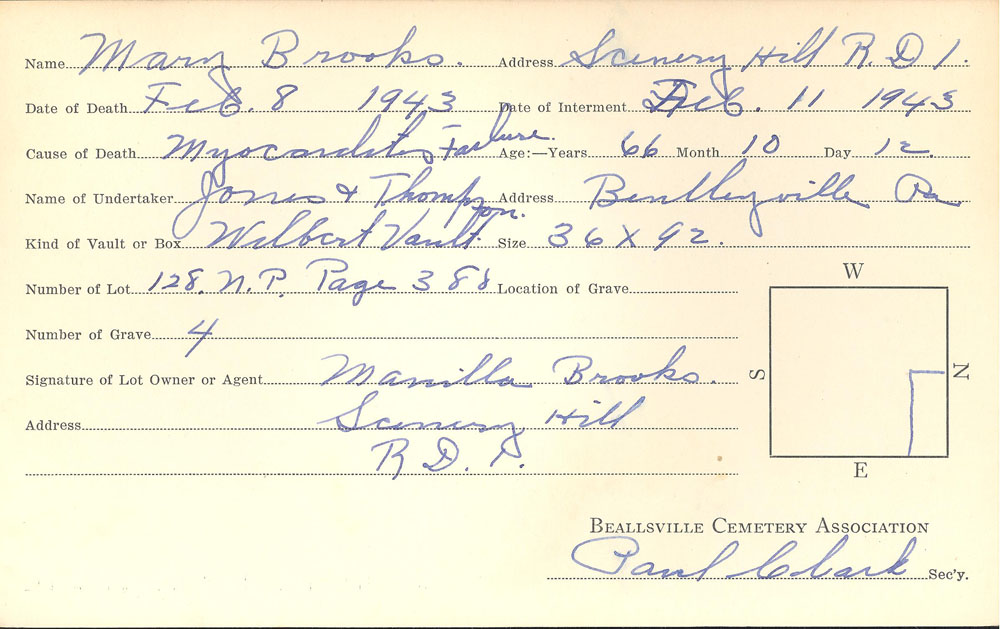 Name Mary Brooks. Address Scenery Hill R. D 1.
Date of Death Feb. 8 1943 Date of Interment Feb. 11 1943
Cause of Death Myocarditis Failure. Age:—Years 66 Month 10 Day 12.
Name of Undertaker Jones & Thompson. Address Bentleyville Pa
Kind of Vault or Box Wilbert Vault. Size 36 X 92.
Number of Lot 128. N.P. Page 388 Location of Grave
Number of Grave 4
W
Signature of Lot Owner or Agent Manilla Brooks.
S N
Address Scenery Hill
R. D. 1.
E
BEALLSVILLE CEMETERY ASSOCIATION
Paul Clark Sec'y.